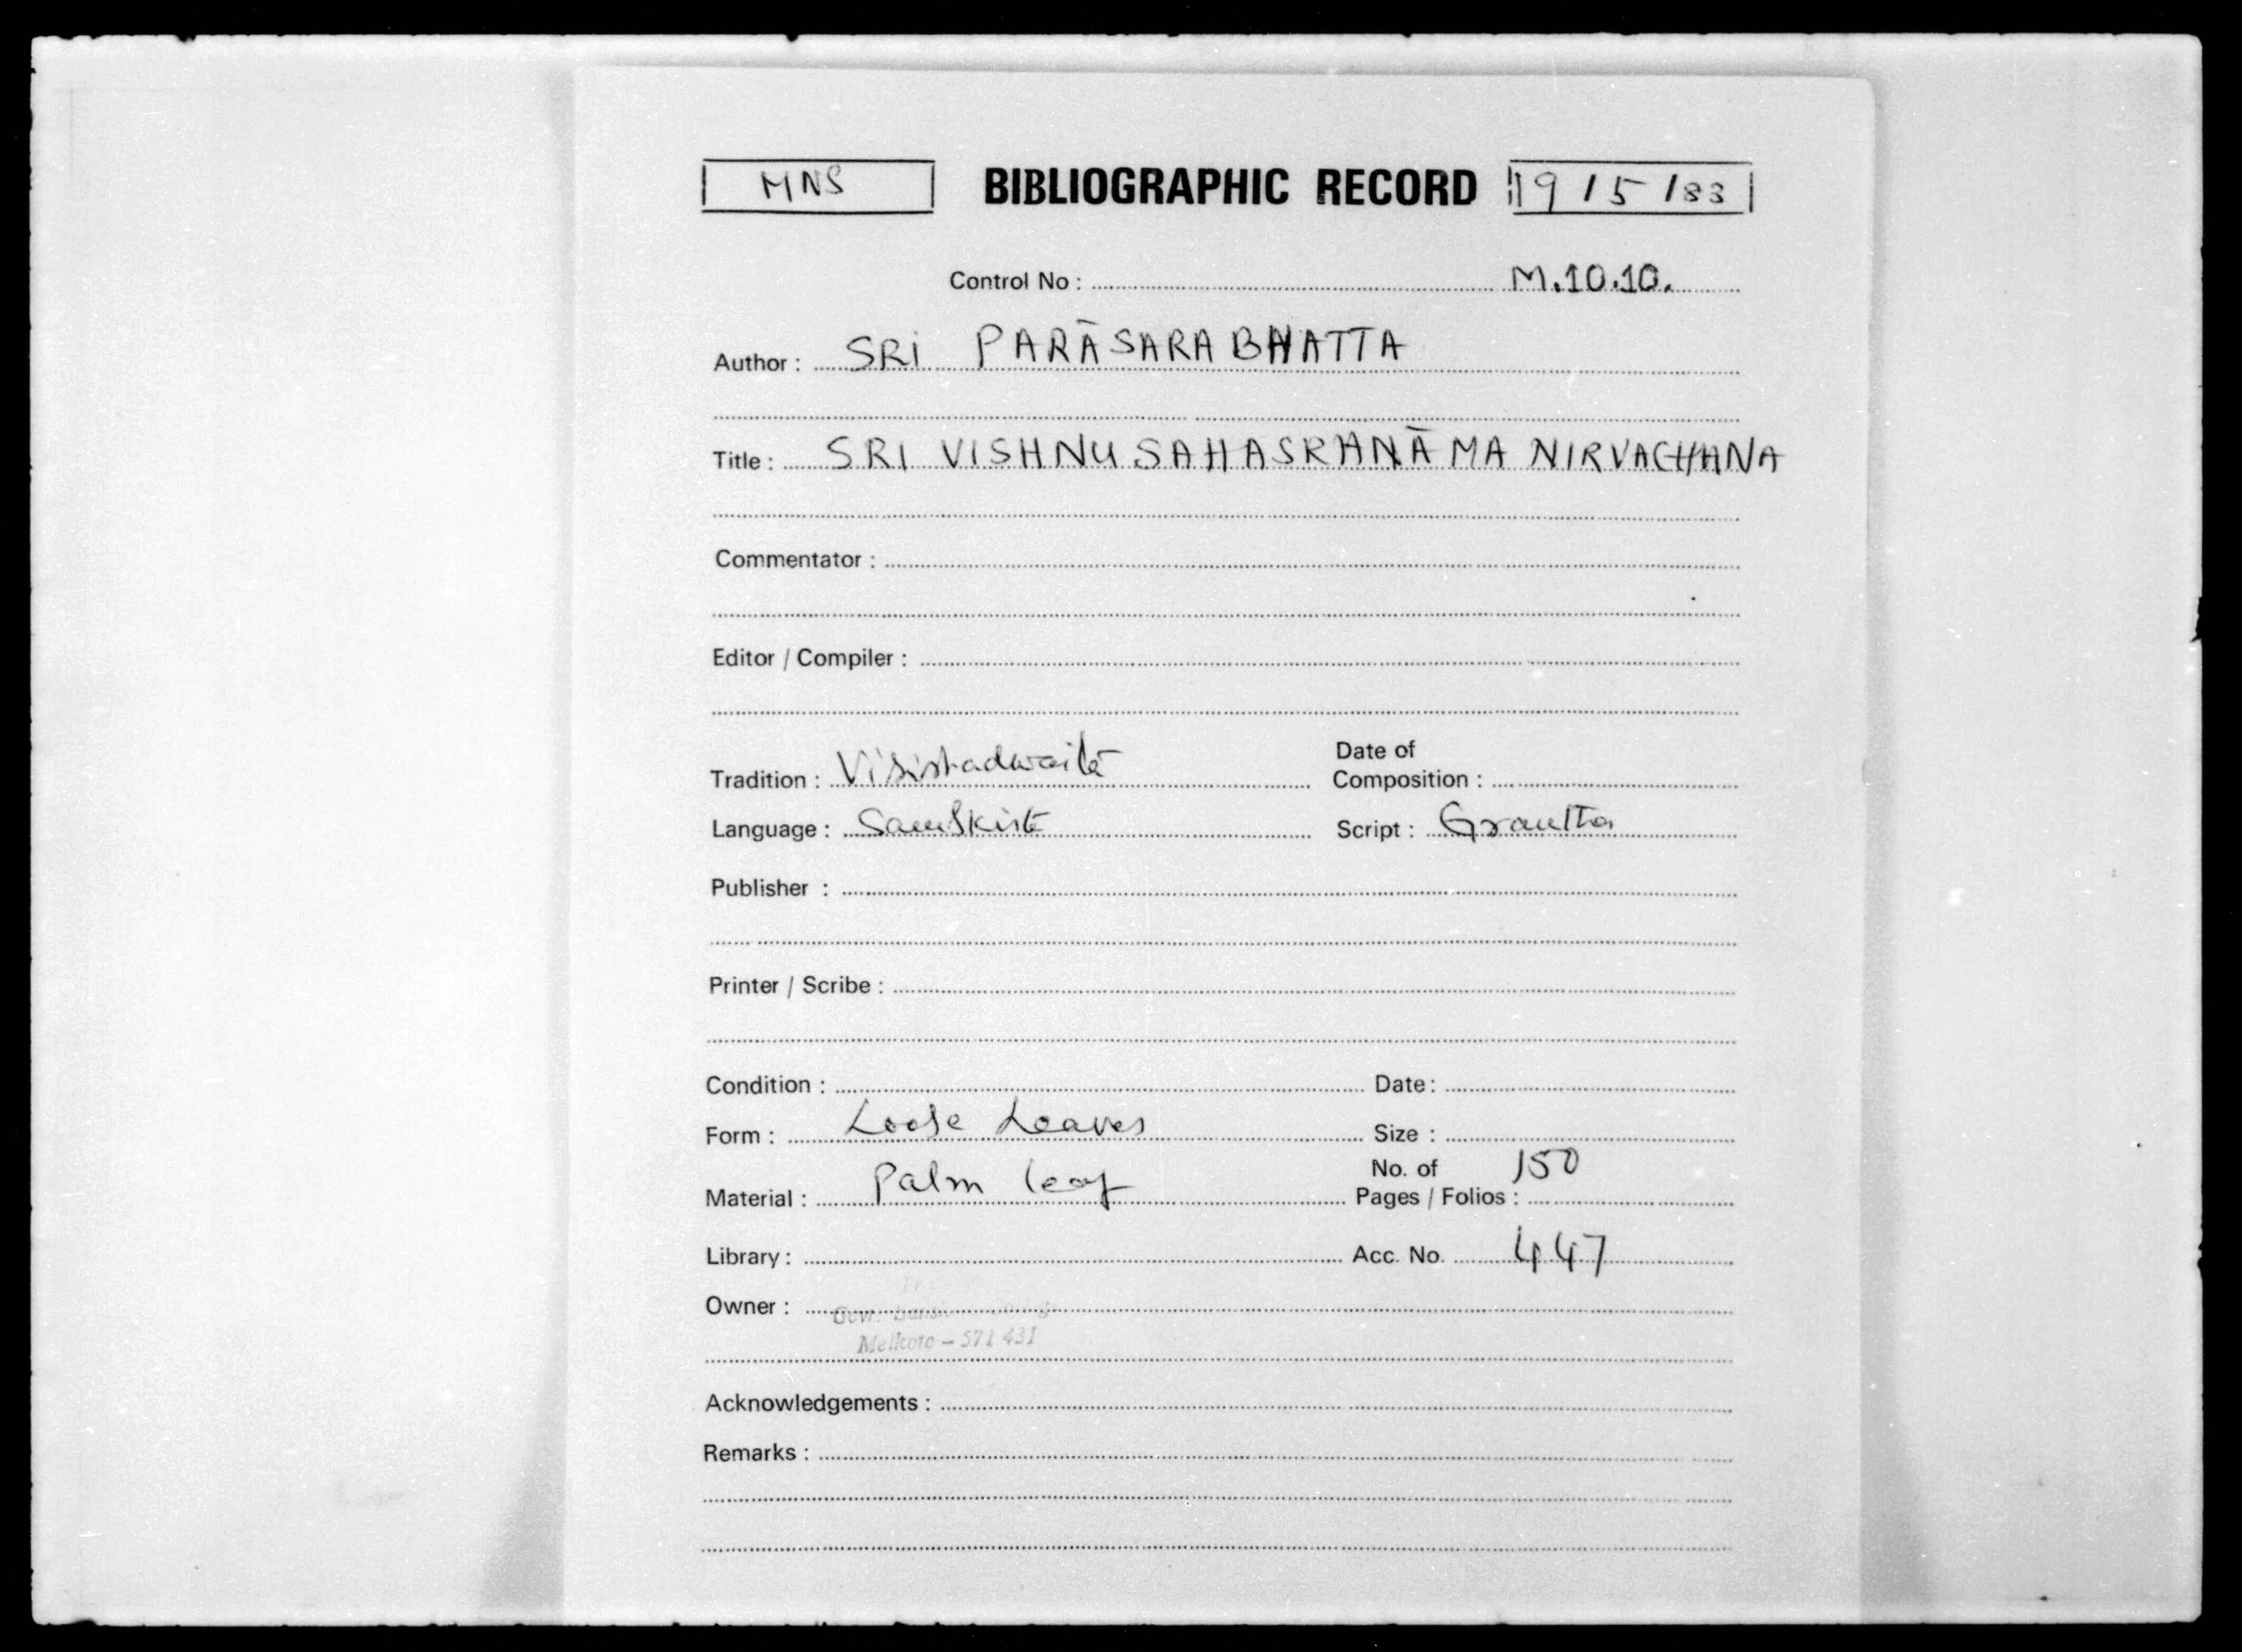 MNS BIBLIOGRAPHIC RECORD 19/5/83
Control No : M.10.10.
Author : SRI PARĀSARA BHATTA
Title : SRI VISHNU SAHASRANĀMA NIRVACHANA
Commentator :
Editor / Compiler :
Tradition : Visishadwaita Date of Composition :
Language : Samskirta Script : Grantha
Publisher :
Printer / Scribe :
Condition : Date :
Form : Loose Leaves Size :
Material : Palm leaf No. of Pages / Folios : 150
Library : Acc. No. 447
Owner : Govt.
Melkote – 571 431
Acknowledgements :
Remarks :